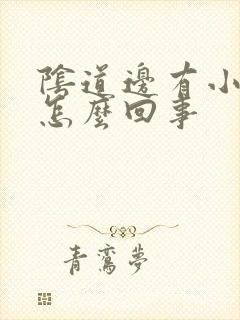 陰道邊有小
怎麼回事
青鸞夢